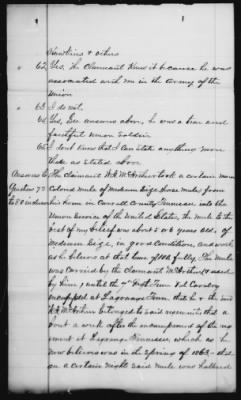 Hawkins & others
" 62 Yes, the Claimant knew it because he was
associated with me in the army of the
Union
" 63 I do not.
64 Yes, See answers above, he was a true and
faithful Union Soldier
65 I don't know that I can state anything more
than as stated above
Answers to The claimant W. H. McArthur took a certain mare
Question 77 Colored mule of medium size from
to 80 inclusive his home in Carroll County Tennessee into the
Union Service of the United States, the mule to the
best of my belief was about 5 or 6 years old, of
medium size, in good condition, and worth
as he believes at that time $100 fully. The mule
was carried by the Claimant McArthur (& used
by him) until the 7th Regt Tenn Vol Cavalry
encamped at Lagrange Tenn. that he & the said
W. H. McArthur belonged to said regiment that a
bout a week after the encampment of the reg
iment at Lagrange Tennessee, which as he
now believes was in the Spring of 1863 - that
on a certain night said mule was haltered